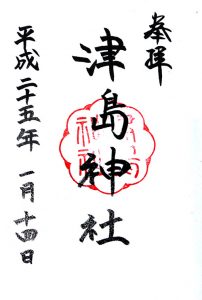 奉拝
津島神社
平成二十五年 一月十四日